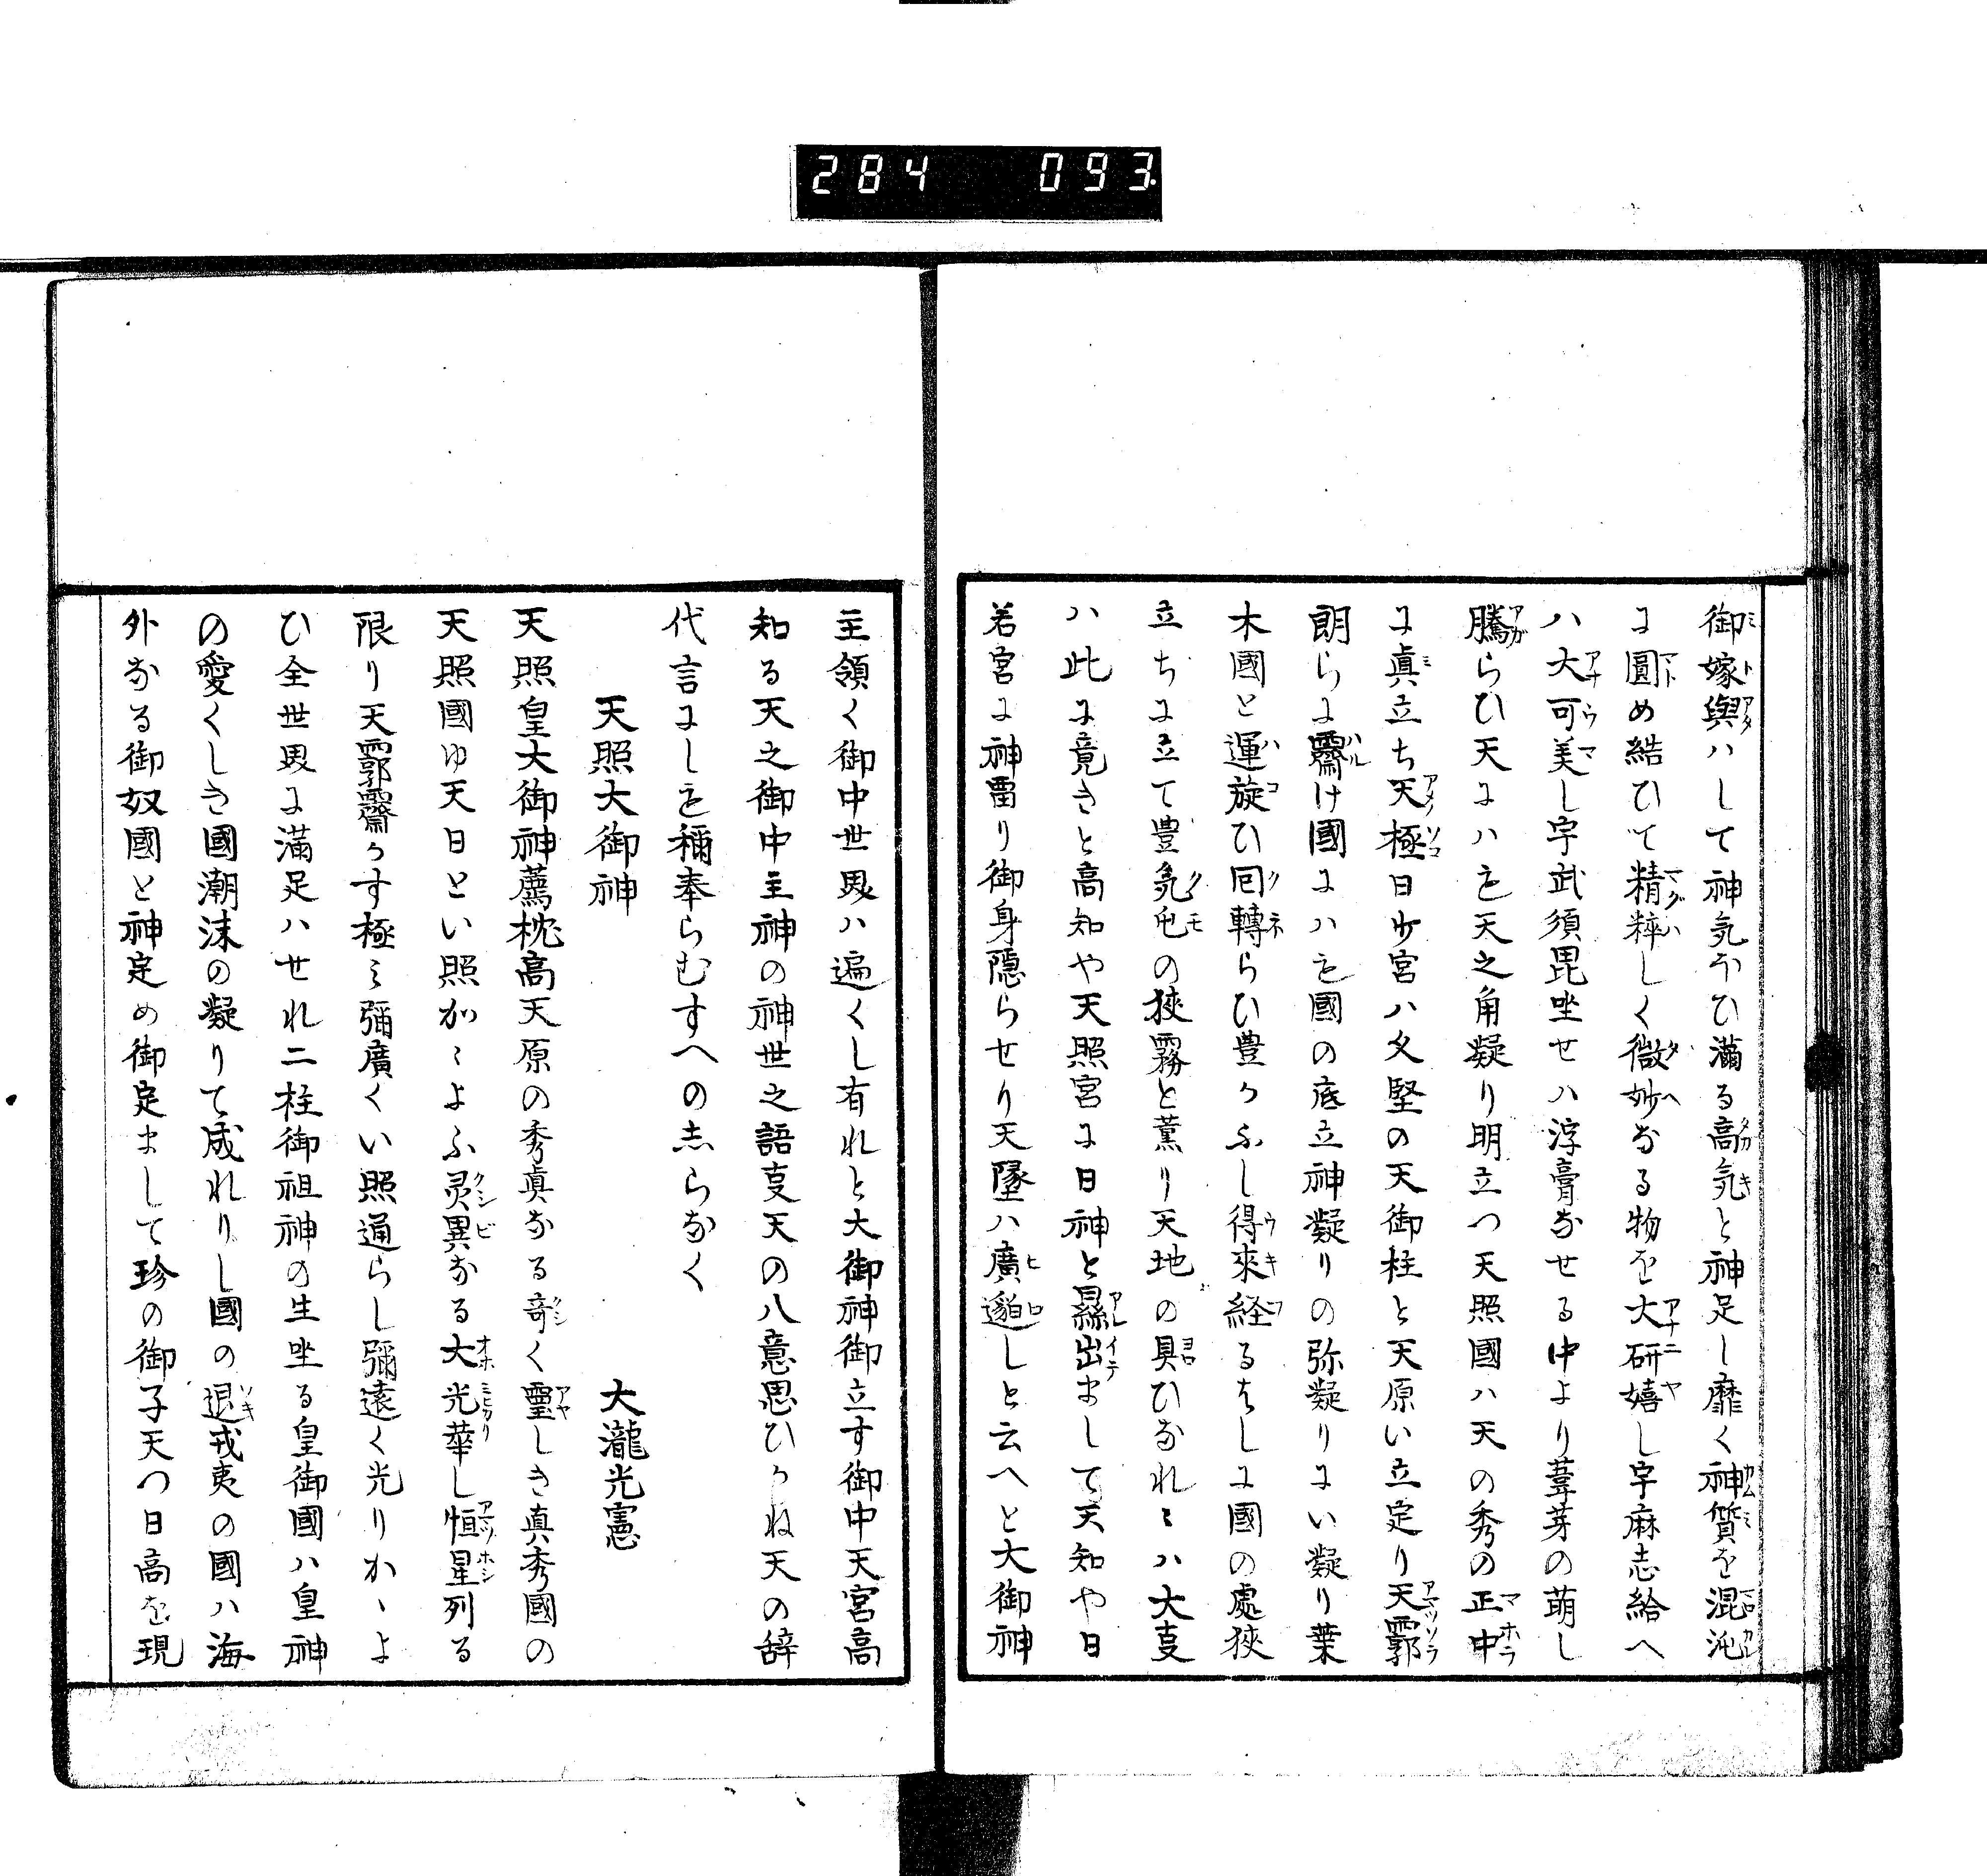 284 093
御嫁與ハして神気なひ満る高気と神足し靡く神質を混沌
に圓め結ひて精粹しく微妙なる物を大研嬉し宇麻志給へ
ハ大可美し宇武須毘坐せハ浮膏なせる中より葦芽の萌し
騰らひ天にハも天之角凝り明立つ天照國ハ天の秀の正中
に眞立ち天極日少宮ハ攵堅の天御柱と天原い立定り天霩
朗らに霽け國にハも國の底立神凝りの弥凝りにい凝り葉
木國と運旋ひ囘轉らひ豊かふし得來経るはしに國の處狹
立ちに立て豊の狹霧と薫り天地の具ひなれゝハ大㕝
ハ此に竟きと高知や天照宮に日神と顯出まして天知や日
若宮に神畱り御身隠らせり天墜ハ廣邈しと云へと大御神
主領く御中世界ハ遍くし有れと大御神御立す御中天宮高
知る天之御中主神の神世之語㕝天の八意思ひかね天の辞
代言にしを稱奉らむすへの志らなく
天照大御神 大瀧光憲
天照皇大御神薦枕高天原の秀眞なる竒く靈しき真秀國の
天照國ゆ天日とい照かゝよふ灵異なる大光華し恒星列る
限り天霩霽かす極ミ彌廣くい照通らし彌遠く光りかゝよ
ひ全世界に満足ハせれ二柱御祖神の生坐る皇御國ハ皇神
の愛くしき國潮沫の凝りて成れりし國の退戎夷の國ハ海
外なる御奴國と神定め御定まして珍の御子天つ日高を現